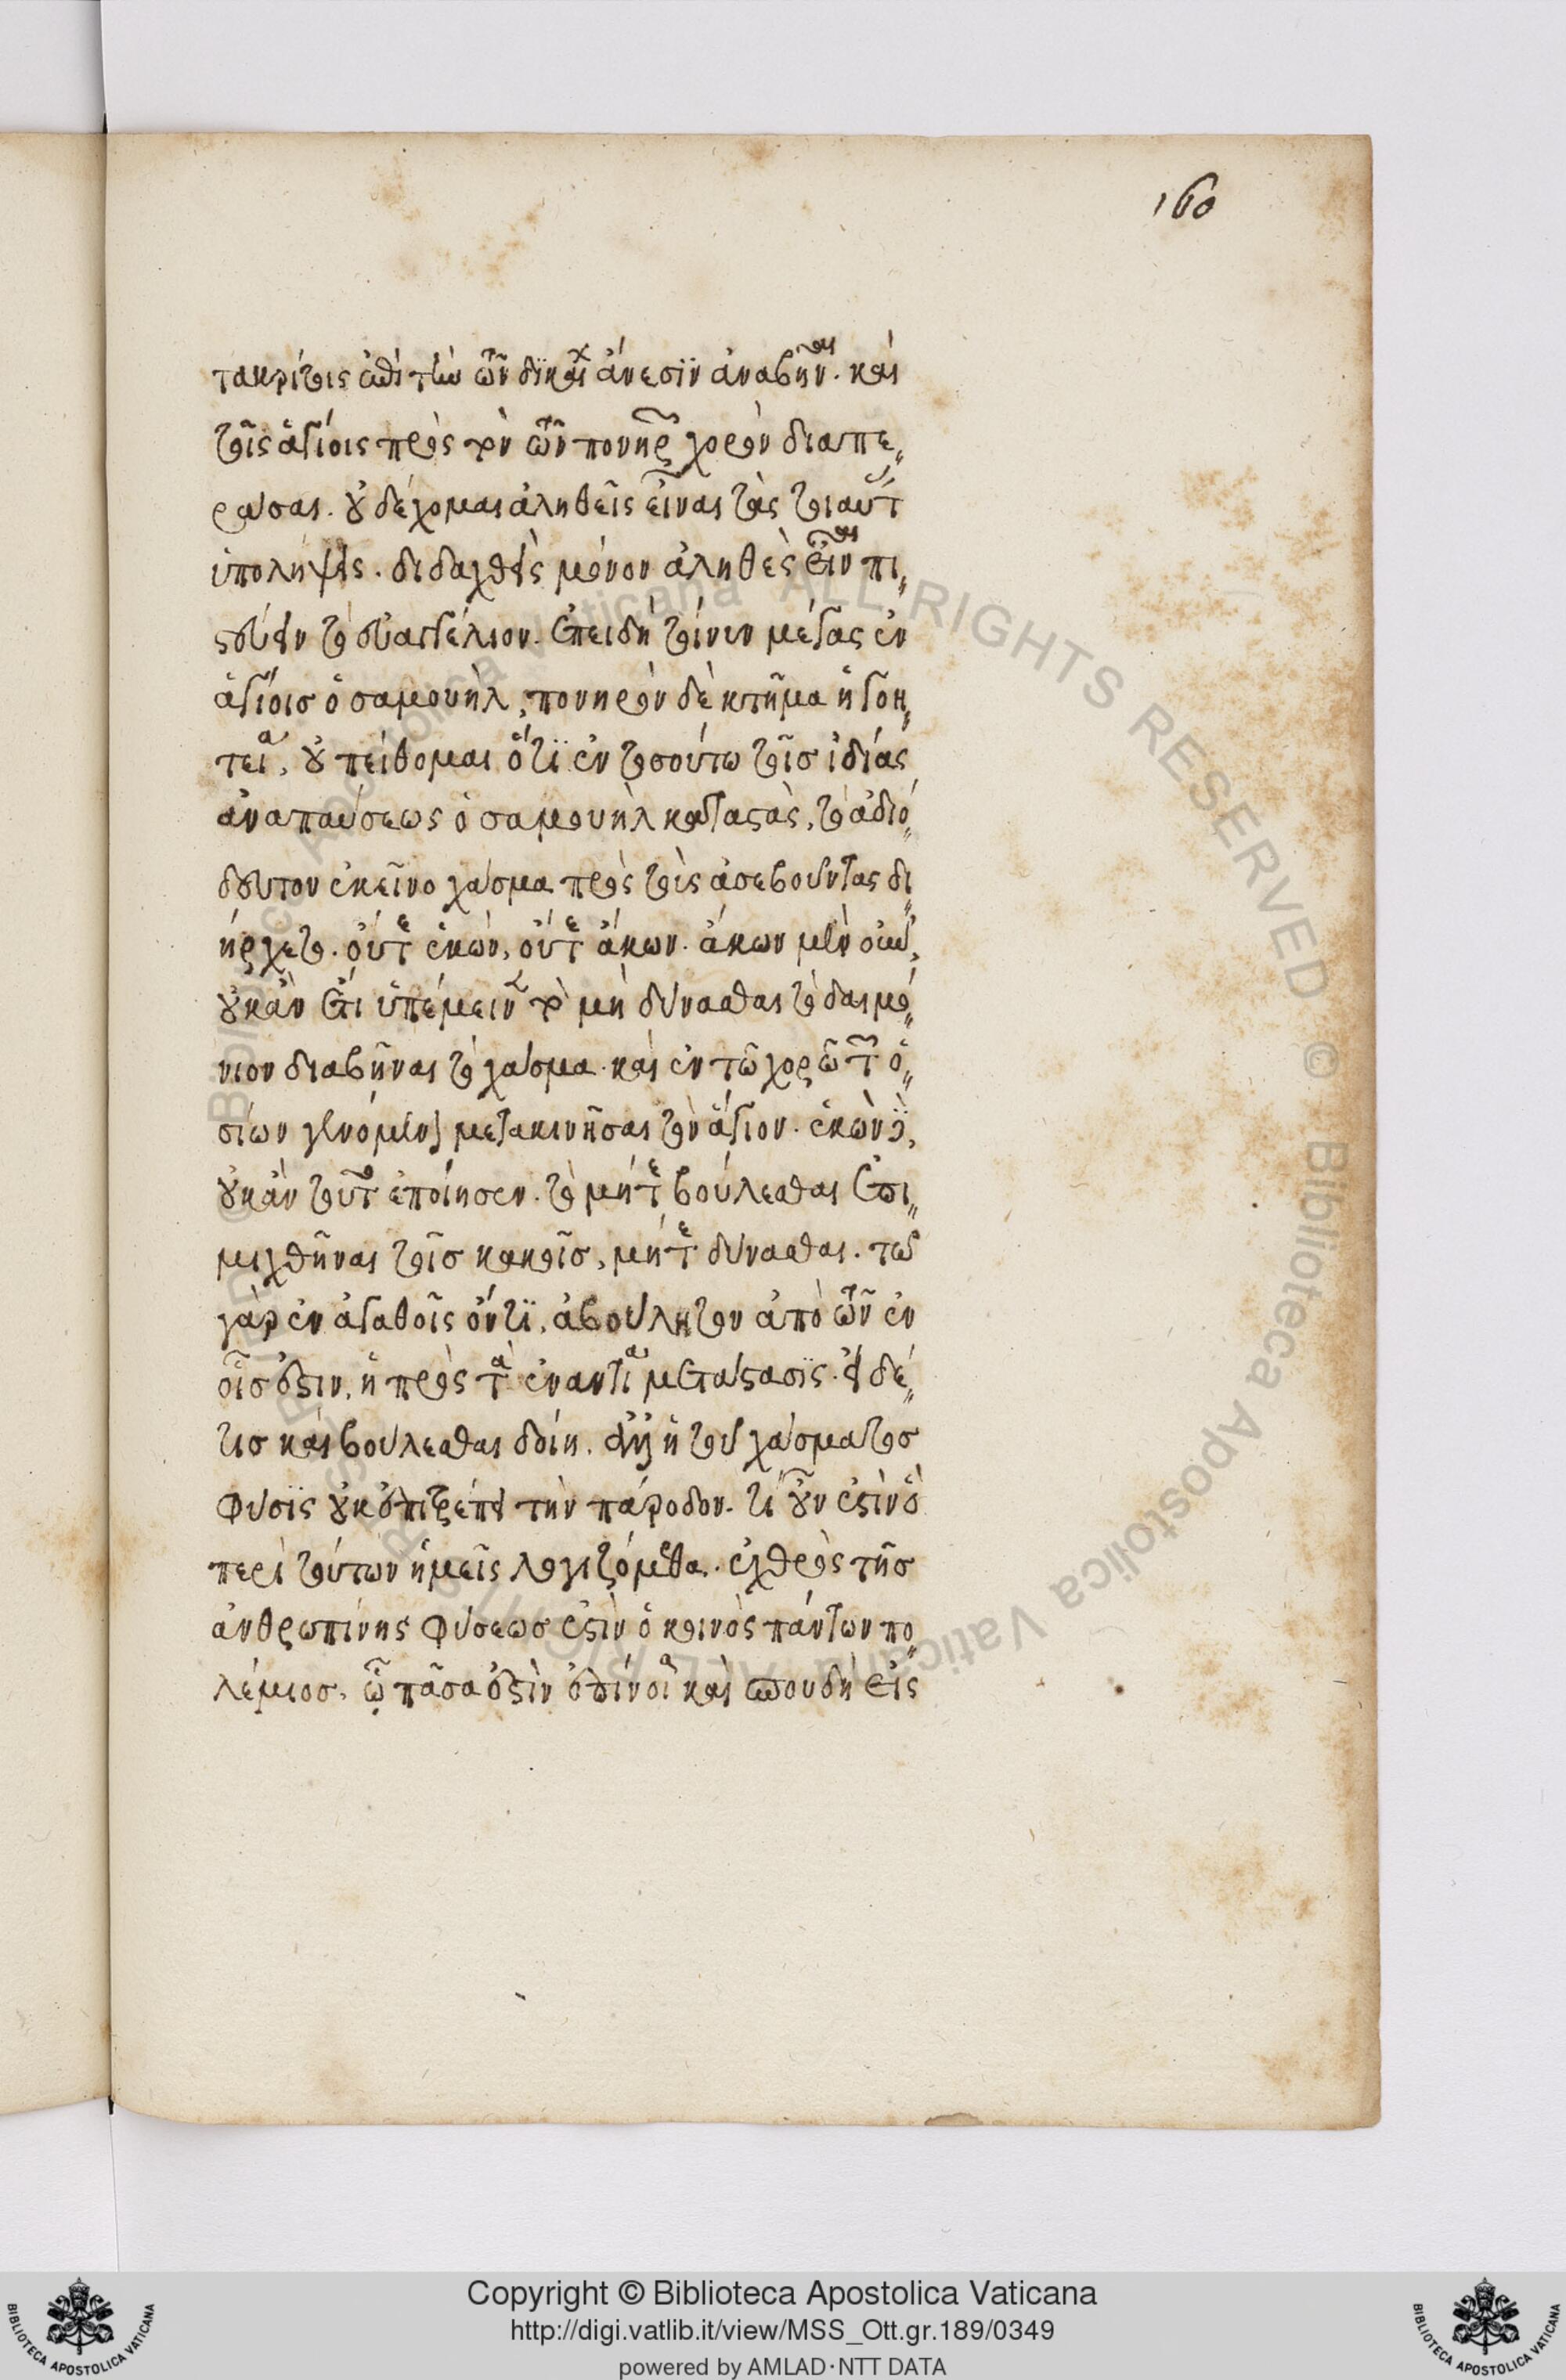 160
τακρίτοις ἐπὶ τὴν τῶν δικαίων ἄνεσιν ἀναβῆναι. καὶ
τοῖς ἁγίοις πρὸς τὸν τῶν πονηρῶν χορὸν διαπε,,
ρᾶσαι. οὐ δέχομαι ἀληθεῖς εἶναι τὰς τοιαύτας
ὑπολήψεις. διδαχθεὶς μόνον ἀληθὲς εἶναι πι,,
στεύειν τὸ εὐαγγέλιον. ἐπειδὴ τοίνυν μέγας ἐν
ἁγίοισ ὁ σαμουὴλ, πονηρὸν δὲ κτῆμα ἡ γοη,,
τεία, οὐ πείθομαι ὅτι ἐν τοσούτω τῆσ ἰδίας
ἀναπαύσεως ὁ σαμουὴλ καταστὰς, τὸ ἀδιό,,
δευτον ἐκεῖνο χάσμα πρὸς τοὺς ἀσεβοῦντας δι,,
ήρχετο. οὔτε ἑκὼν, οὔτε ἄκων. ἄκων μὲν οὖν,
οὐκ ἂν ἔτι ὑπέμεινε τῷ μὴ δύνασθαι τὸ δαιμό,,
νιον διαβῆναι τὸ χάσμα. καὶ ἐν τῶ χορῶ τῶν ὁ,,
σίων γενόμενον μετακινῆσαι τὸν ἅγιον. ἑκὼν δὲ,
οὐκ ἂν τοῦτο ἐποίησεν. τὸ μήτε βούλεσθαι ἐπι,,
μιχθῆναι τοῖσ κακοῖσ, μήτε δύνασθαι. τῶ
γὰρ ἐν ἀγαθοῖς ὄντι, ἀβούλητον ἀπὸ τῶν ἐν
οἷσ ἐστιν, ἡ πρὸς τὰ ἐναντία μετάστασις. εἰ δέ,,
τισ καὶ βούλεσθαι δοίη. ἀλλ' ἡ τοῦ χάσματοσ
φύσις οὐκ ἐπιτρέπει τὴν πάροδον. τί οὖν ἐστὶν ὃ
περὶ τούτων ἡμεῖς λογιζόμεθα. ἐχθρὸς τῆσ
ἀνθρωπίνης φύσεωσ ἐστὶν ὁ κοινὸς πάντων πο,,
λέμιοσ. ᾧ πᾶσα ἐστὶν ἐπίνοια καὶ σπουδὴ εἰς
Copyright © Biblioteca Apostolica Vaticana
http://digi.vatlib.it/view/MSS_Ott.gr.189/0349
powered by AMLAD·NTT DATA